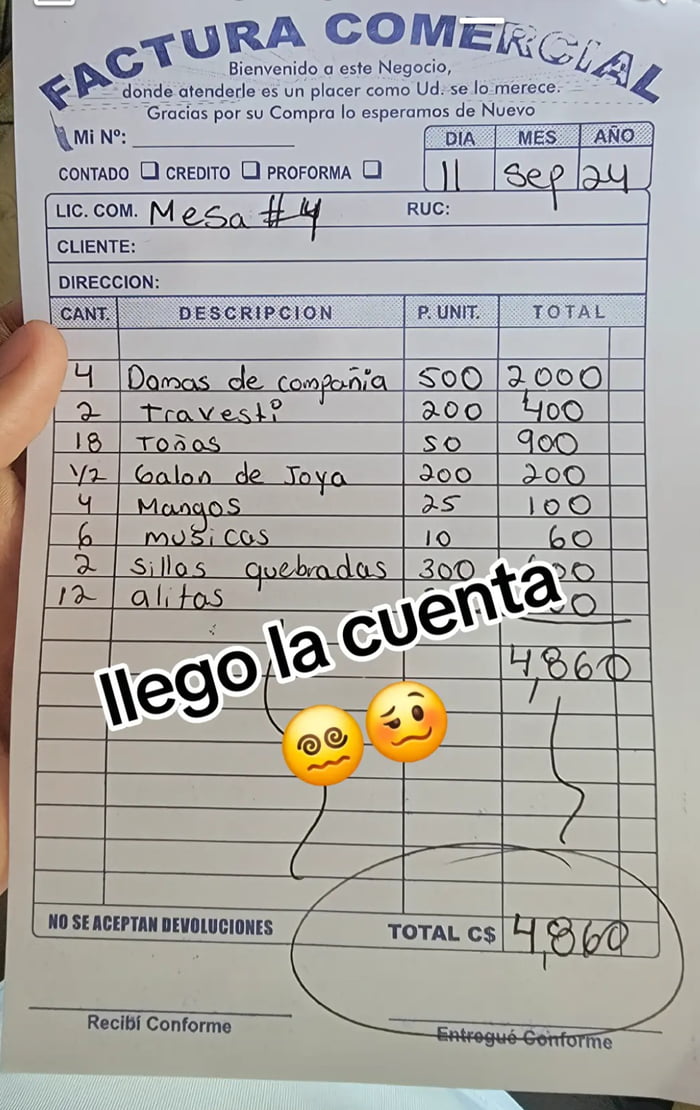 FACTURA COMERCIAL
Bienvenido a este Negocio,
donde atenderle es un placer como Ud. se lo merece.
Gracias por su Compra lo esperamos de Nuevo
Mi Nº:
DIA MES AÑO
CONTADO CREDITO PROFORMA
11 Sep 24
LIC. COM. Mesa #4 RUC:
CLIENTE:
DIRECCION:
CANT. DESCRIPCION P. UNIT. TOTAL
4 Damas de compañia 500 2,000
2 travesti 200 400
18 Toñas 50 900
1/2 Galon de Joya 200 200
4 Mangos 25 100
6 musicas 10 60
2 sillas quebradas 300
12 alitas
llego la cuenta
4,860
NO SE ACEPTAN DEVOLUCIONES
TOTAL C$ 4,860
Recibí Conforme
Entregué Conforme